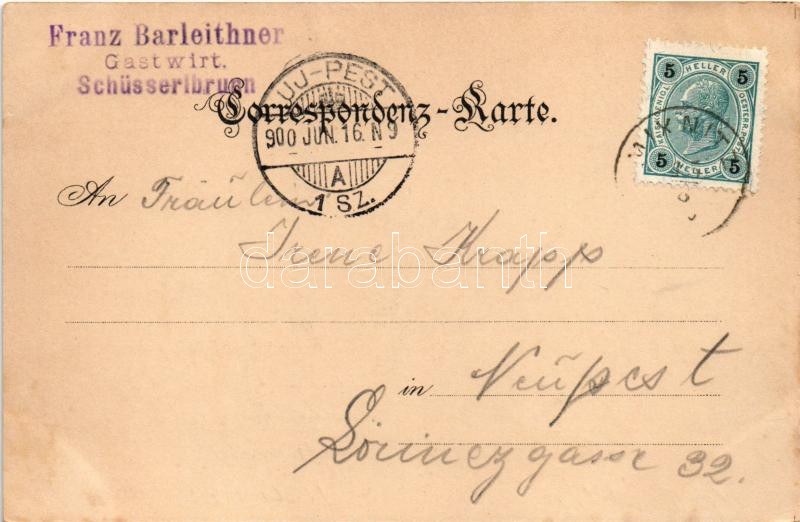 Franz Barleithner
Gastwirt.
Schüsserlbrunn
Correspondenz-Karte.
UJ-PEST
900 JUN. 16. N 9
A
1 SZ.
5 HELLER 5
KAIS. KÖNIGL. OESTERR. POST
5 HELLER 5
MIXNITZ
An Fräulein
Irene Krapp
darabanth
in Neŭpest
Lörinczgasse 32.